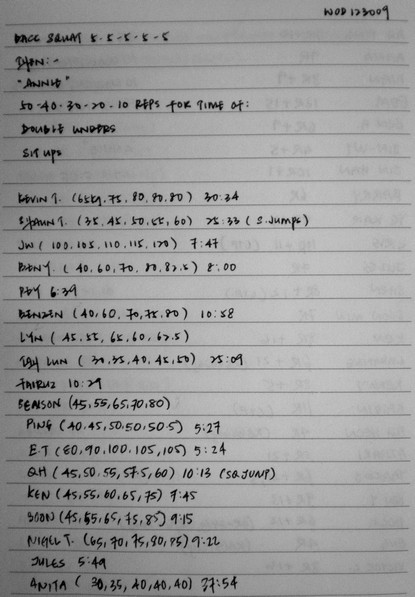 WOD 123009
BACK SQUAT 5-5-5-5-5
THEN:-
"ANNIE"
50-40-30-20-10 REPS FOR TIME OF:
DOUBLE UNDERS
SIT UPS
KEVIN T. (65, 75, 80, 80, 80) 30:34
SHAUN T. (35, 45, 50, 55, 60) 25:33 (S.JUMPS)
JW (100, 105, 110, 115, 120) 7:47
BENY. (40, 60, 70, 80, 82.5) 8:00
REY 6:39
BENZEN (40, 60, 70, 75, 80) 10:58
LYN (45, 55, 65, 60, 62.5)
LUN (30, 35, 40, 45, 50) 25:09
FAIRUZ 10:29
SEALSON (45, 55, 65, 70, 80)
PING (40, 45, 50, 50, 50.5) 5:27
E.T (80, 90, 100, 105, 105) 5:24
QH (45, 50, 55, 57.5, 60) 10:13 (SQ.JUMP)
KEN (45, 55, 60, 65, 75) 7:45
SOON (45, 55, 65, 75, 85) 9:15
NIGEL T. (65, 70, 75, 80, 75) 9:22
JULES 5:49
ANITA (30, 35, 40, 40, 40) 27:54